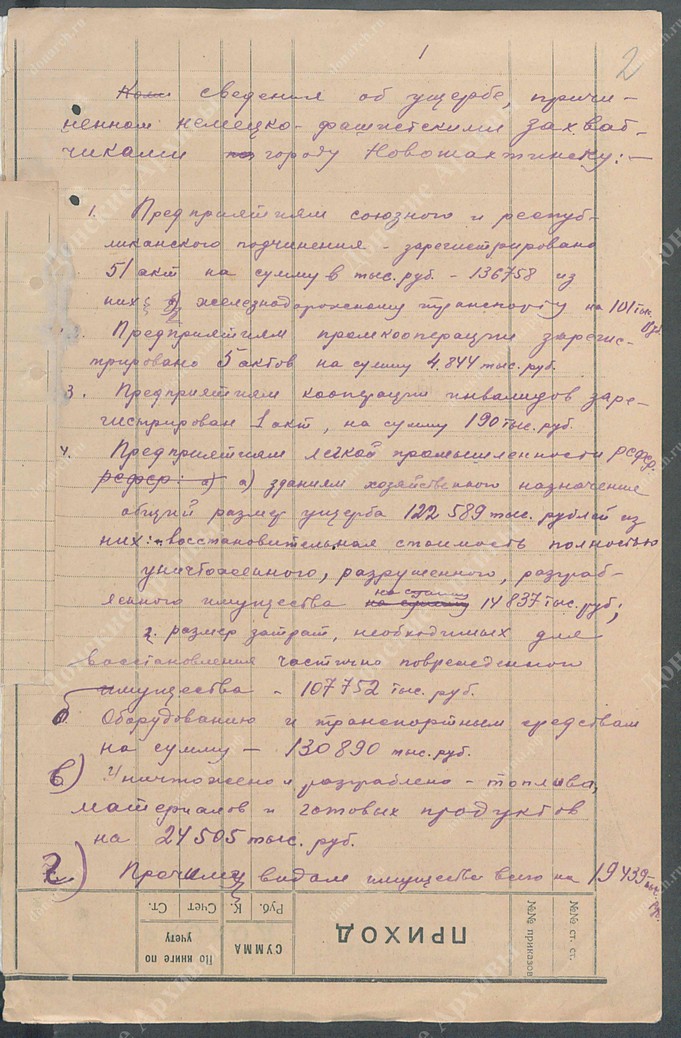 1
2
сведения об ущербе, причи-
ненном немецко-фашистскими захват-
чиками городу Новошахтинску:-
1. Предприятиям союзного и респуб-
ликанского подчинения - зарегистрировано
51 акт на сумму в тыс. руб. - 136758 из
них железнодорожному транспорту на 101 тыс.
руб.
2. Предприятиям промкооперации зарегис-
трировано 5 актов на сумму 4.844 тыс. руб.
3. Предприятиям кооперации инвалидов заре-
гистрирован 1 акт, на сумму 190 тыс. руб.
4. Предприятиям легкой промышленности РСФСР.
РСФСР: а) а) зданиям хозяйственного назначения
общий размер ущерба 122 589 тыс. рублей из
них: восстановительная стоимость полностью
уничтоженного, разрушенного, разграб-
ленного имущества на сумму 14837 тыс. руб;
2. размер затрат, необходимых для
восстановления частично поврежденного
имущества - 107752 тыс. руб.
б Оборудованию и транспортным средствам
на сумму - 130 890 тыс. руб.
в) Уничтожено и разграблено - топлива,
материалов и готовых продуктов
на 24505 тыс. руб.
г) Прочим видам имущества всего на 19439 тыс.
руб.
№№ ст. ст.
№№ приказов
ПРИХОД
СУММА
Руб. К.
По книге по учету
Счет Ст.
donarch.ru
Донские Архивы